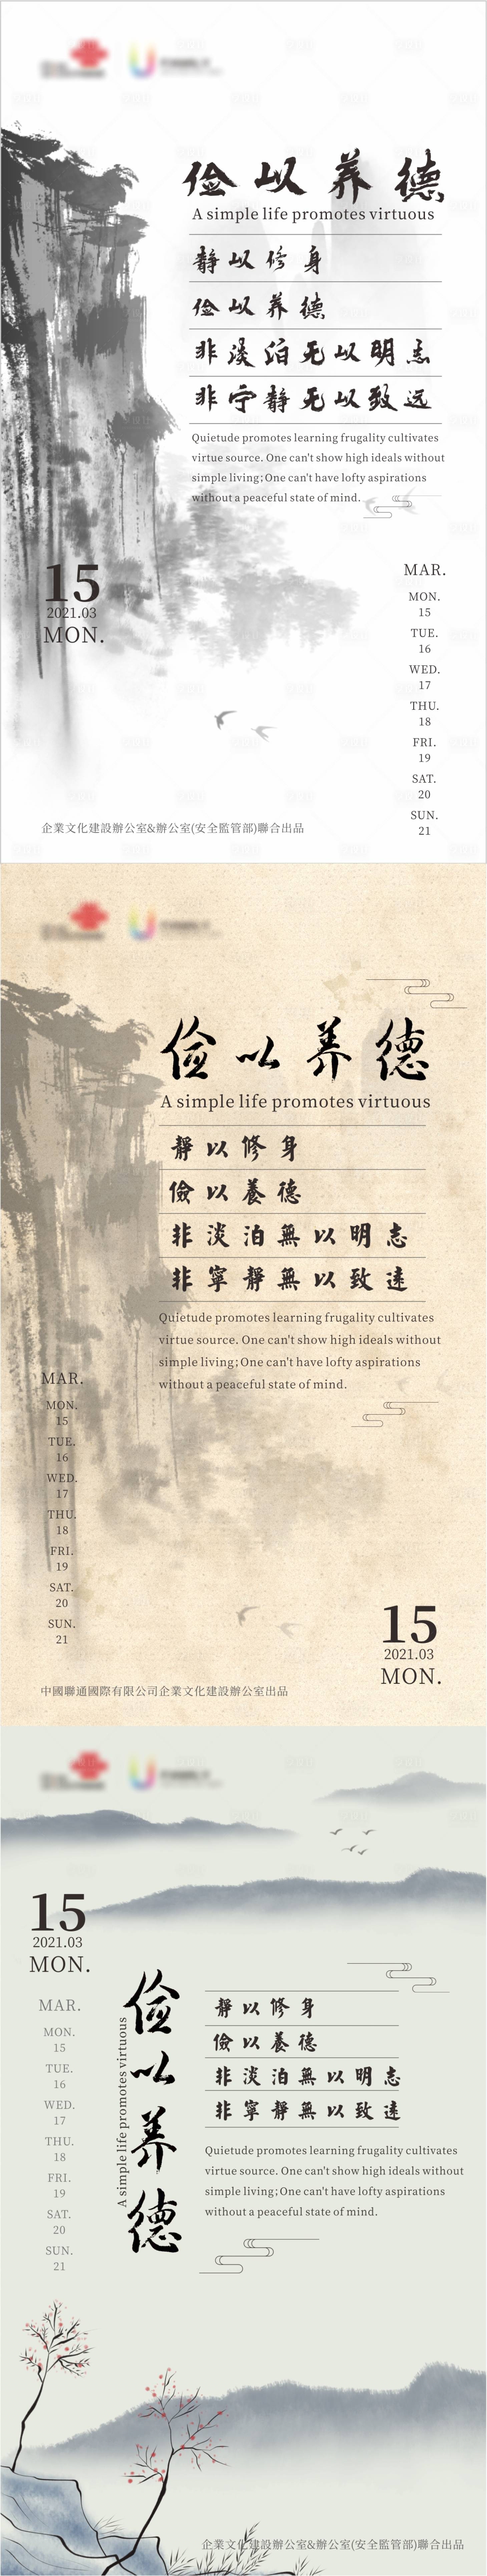 俭以养德
A simple life promotes virtuous
静以修身
俭以养德
非淡泊无以明志
非宁静无以致远
Quietude promotes learning frugality cultivates
virtue source. One can't show high ideals without
simple living;One can't have lofty aspirations
without a peaceful state of mind.
15
2021.03
MON.
MAR.
MON.
15
TUE.
16
WED.
17
THU.
18
FRI.
19
SAT.
20
SUN.
21
企業文化建設辦公室&辦公室(安全監管部)聯合出品
俭以养德
A simple life promotes virtuous
靜以修身
儉以養德
非淡泊無以明志
非寧靜無以致遠
Quietude promotes learning frugality cultivates
virtue source. One can't show high ideals without
simple living;One can't have lofty aspirations
without a peaceful state of mind.
MAR.
MON.
15
TUE.
16
WED.
17
THU.
18
FRI.
19
SAT.
20
SUN.
21
15
2021.03
MON.
中國聯通國際有限公司企業文化建設辦公室出品
15
2021.03
MON.
MAR.
MON.
15
TUE.
16
WED.
17
THU.
18
FRI.
19
SAT.
20
SUN.
21
俭以养德
A simple life promotes virtuous
靜以修身
儉以養德
非淡泊無以明志
非寧靜無以致遠
Quietude promotes learning frugality cultivates
virtue source. One can't show high ideals without
simple living;One can't have lofty aspirations
without a peaceful state of mind.
企業文化建設辦公室&辦公室(安全監管部)聯合出品